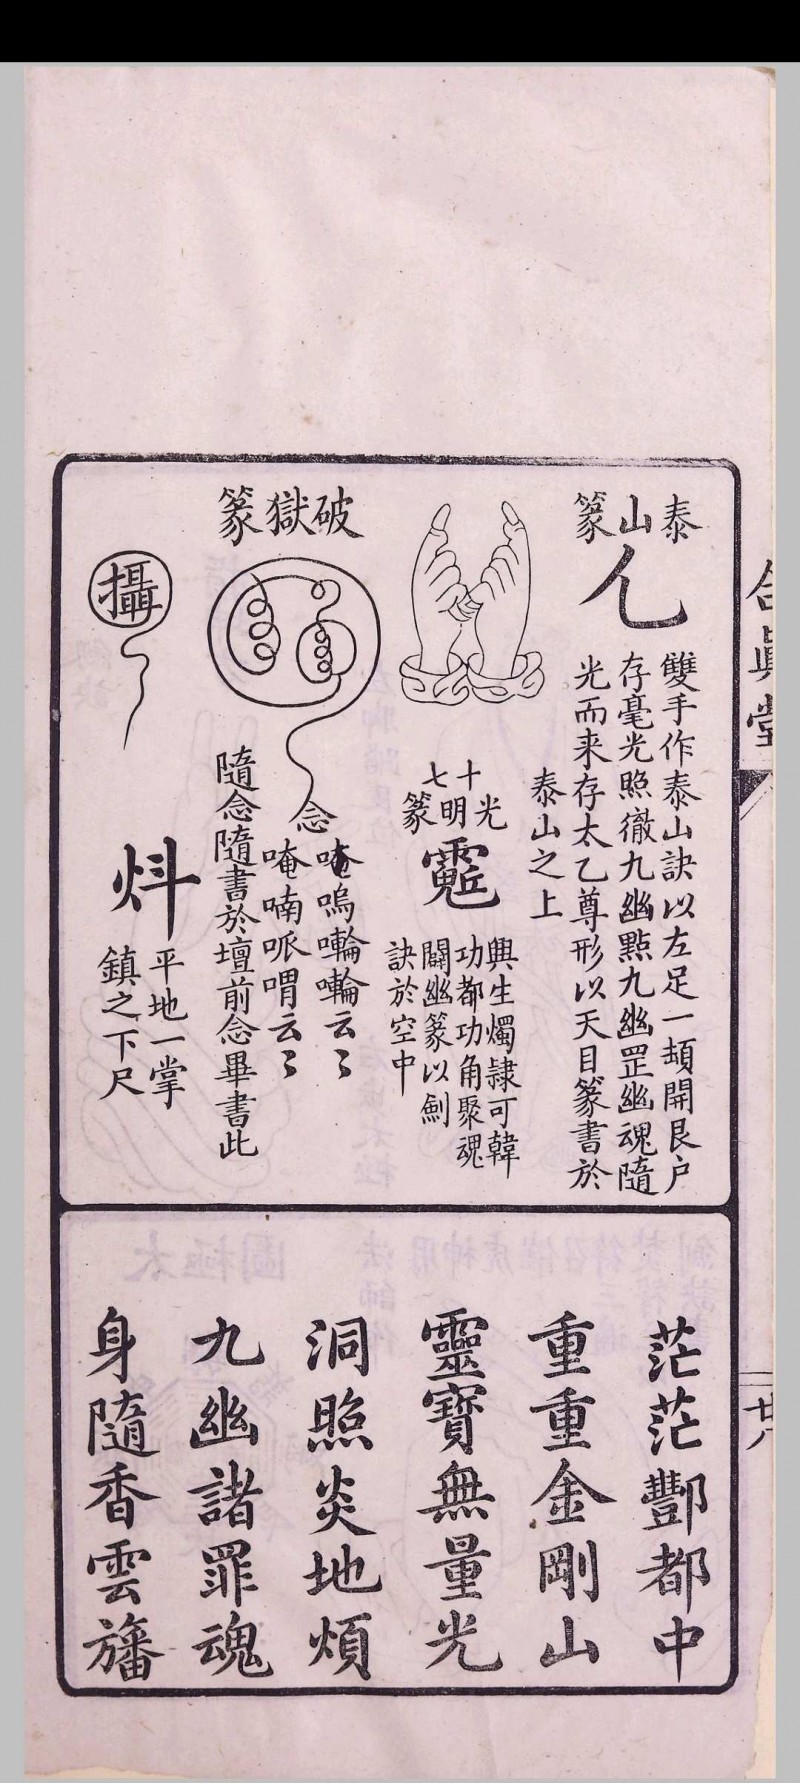 泰山篆
雙手作泰山訣以左足一頓開艮户
存毫光照徹九幽點九幽罡幽魂隨
光而来存太乙尊形以天目篆書於
泰山之上
十七光明篆
興生燭隷可韓
功都功角聚魂
闢幽篆以劍
訣於空中
破獄篆
念
唵嗚囀輪云〻
唵喃哌喟云〻
隨念隨書於壇前念畢書此
攝
平地一掌
鎮之下尺
茫茫酆都中
重重金剛山
靈寶無量光
洞照炎地煩
九幽諸罪魂
身隨香雲旛
合眞堂
廿八